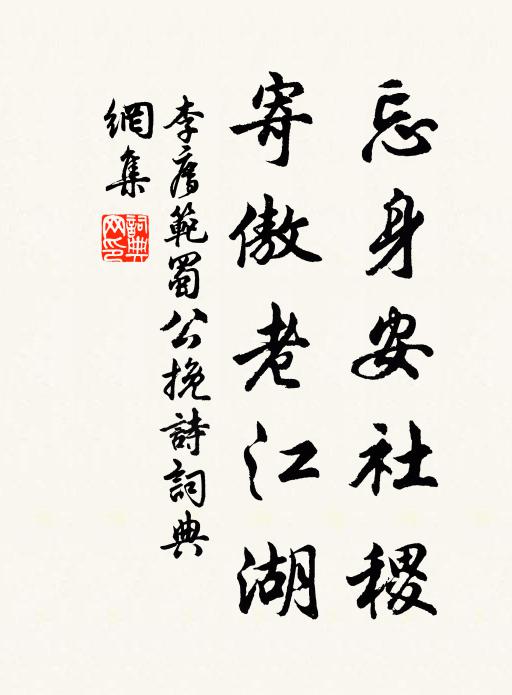 忘身安社稷
寄傲老江湖
李廌範蜀公挽詩詞典
網集
詞典網印